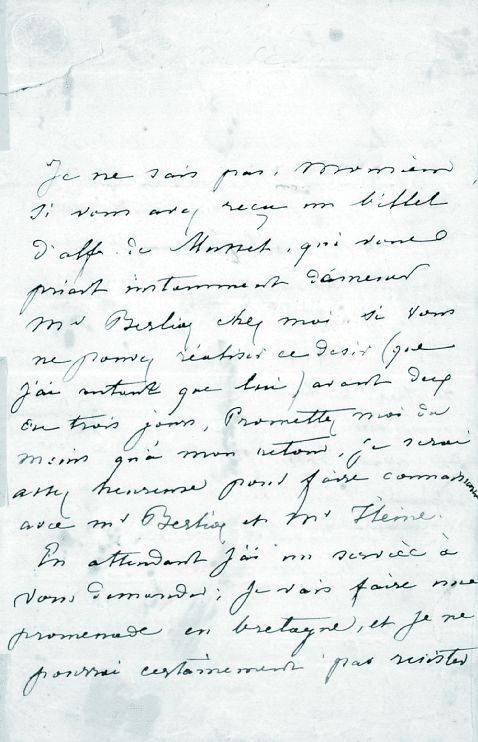 Je ne sais pas, Monsieur
si vous avez reçu un billet
d'alf. de Musset, qui vous
priait instamment d'amener
Mr Berlioz chez moi. si vous
ne pouvez réaliser ce desir (que
j'ai autant que lui) avant deux
ou trois jours, Promettez moi du
moins qu'à mon retour, je serai
assez heureuse pour faire connaissance
avec mr Berlioz et mr Heine.
En attendant j'ai un service à
vous demander; Je vais faire une
promenade en bretagne, et je ne
pourrai certainement pas resister